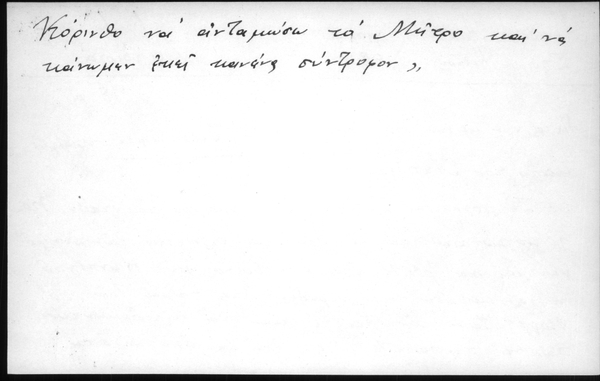 Κόρινθο νά ἀνταμώσω τό Μῆτρο καί νά
κάνωμεν ἐκεῖ κανένα σύντροφον »,